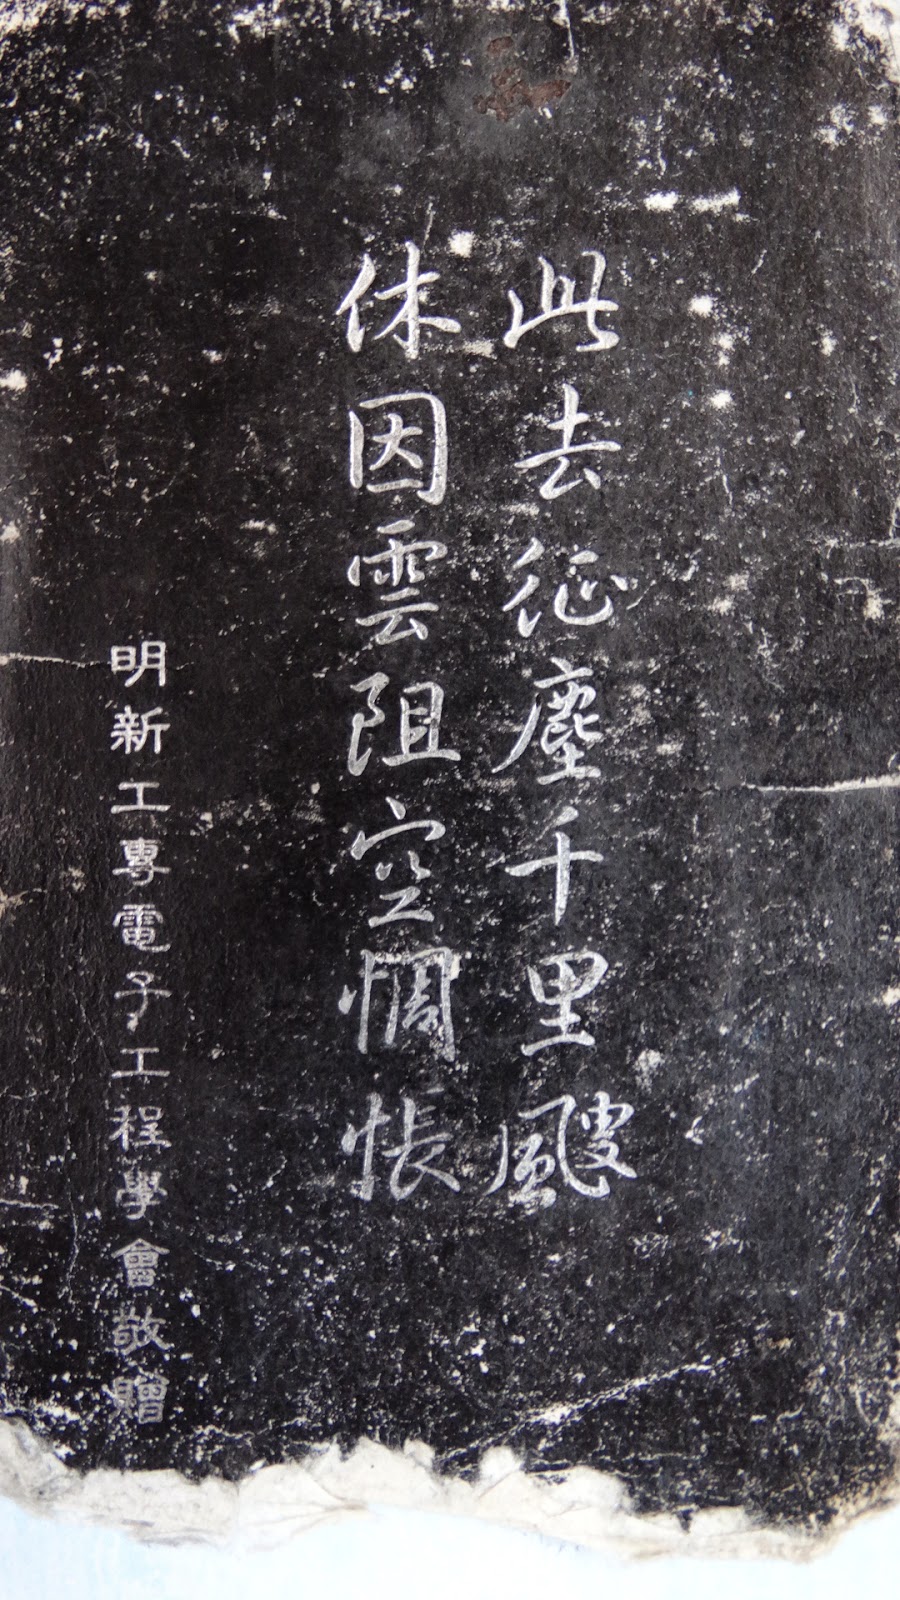 此去征塵千里颼
休因雲阻空惆悵
明新工專電子工程學會敬贈